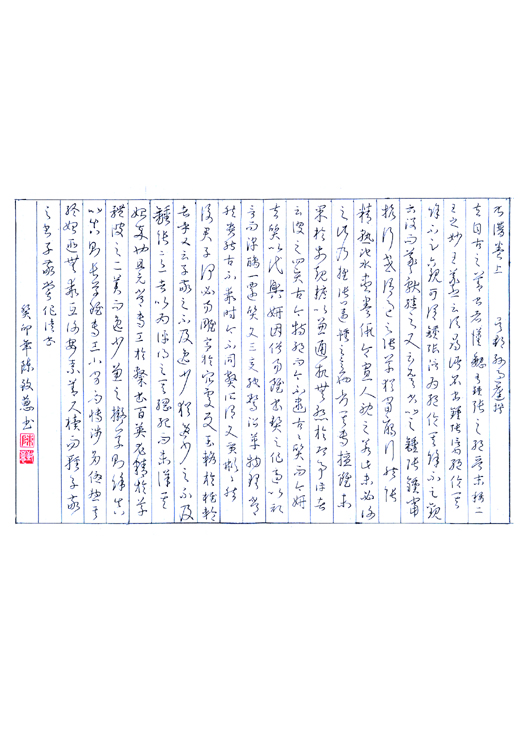 書譜卷上 吳郡孫過庭撰
夫自古之善書者漢魏有鍾張之絕晉末稱二
王之妙王羲之云頃尋諸名書鍾張信為絕倫其
餘不足觀可謂鍾張
云沒而羲獻繼之又云吾書比之鍾張鍾當
抗行或謂過之張草猶當雁行然張
精熟池水盡墨假令寡人耽之若此未必謝
之此乃推張邁鍾之意也考其專擅雖未
果於前規摭以兼通故無慚於即事評者
云彼之四賢古今特絕而今不逮古古質而今妍
夫質以代興妍因俗易雖書契之作適以記
言而淳醨一遷質文三變馳騖沿革物理常
然貴能古不乖時今不同弊所謂文質彬彬然
後君子何必易雕宮於穴處反玉輅於椎輪
者乎又云子敬之不及逸少猶逸少之不及
鍾張意者以為評得其綱紀而未詳其
始卒也且元常專工於隸書百英尤精於草
體彼之二美而逸少兼之擬草則餘真
比真則長草雖專工小劣而博涉多優總其
終始匪無乖互謝安素善尺牘而輕子敬
之書子敬嘗作佳書
癸卯年陳 書